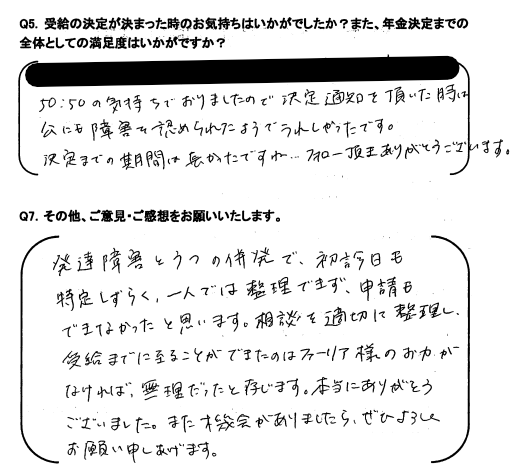 Q5. 受給の決定が決まった時のお気持ちはいかがでしたか？また、年金決定までの
全体としての満足度はいかがですか？
50：50の気持ちでおりましたので決定通知を頂いた時は
公にも障害を認められたようでうれしかったです。
決定までの期間は長かったですね…フォロー頂きありがとうございます。
Q7. その他、ご意見・ご感想をお願いいたします。
発達障害とうつの併発で、初診日も
特定しずらく、一人では整理できず、申請も
できなかったと思います。相談を適切に整理し、
受給までに至ることができたのはファーリア様のお力が
なければ、無理だったと存じます。本当にありがとう
ございました。また機会がありましたら、ぜひよろしく
お願い申しあげます。